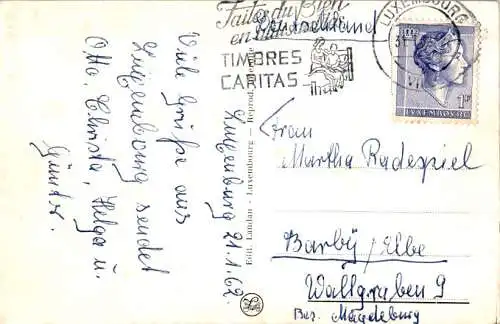 Faites du Bien
en
Deutschland
TIMBRES
CARITAS
LUXEMBOURG
LUXEMBOURG
1F
Luxemburg 21.1.62
Viele Grüße aus
Luxemburg sendet
Otto, Christa, Helga u.
Günter.
Edit. Landau - Luxembourg - Reprod.
Frau
Martha Radespiel
Barby/Elbe
Wallgraben 9
Bez. Magdeburg